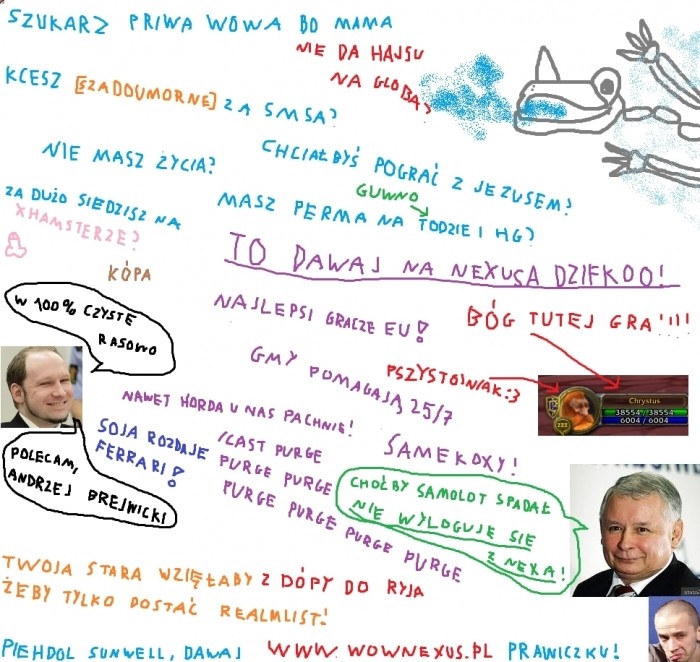 SZUKARZ PRIWA WOWA BO MAMA
NIE DA HAJSU
NA GLOBA?
KCESZ [SZADOUMORNE] ZA SMSA?
NIE MASZ ŻYCIA?
CHCIAŁBYŚ POGRAĆ Z JEZUSEM?
GUWNO
ZA DUŻO SIEDZISZ NA
XHAMSTERZE?
MASZ PERMA NA TODZIE I HG?
KÓPA
TO DAWAJ NA NEXUSA DZIFKOO!
W 100% CZYSTE
RASOWO
NAJLEPSI GRACZE EU!
BÓG TUTEJ GRA!!!!!
GMY POMAGAJĄ 25/7
PSZYSTOJNIAK:3
Chrystus
38554 / 38554
6004 / 6004
zzz
NAWET HORDA U NAS PACHNIE!
SOJA ROZDAJE
FERRARI!
/CAST PURGE
PURGE PURGE
PURGE PURGE PURGE PURGE
SAMEKOXY!
POLECAM,
ANDRZEJ BREJWICKI
CHOĆBY SAMOLOT SPADAŁ
NIE WYLOGUJĘ SIE
Z NEXA!
TWOJA STARA WZIĘŁABY Z DÓPY DO RYJA
ŻEBY TYLKO DOSTAĆ REALMLIST!
PIEHDOL SUNWELL, DAWAJ WWW.WOWNEXUS.PL PRAWICZKU!